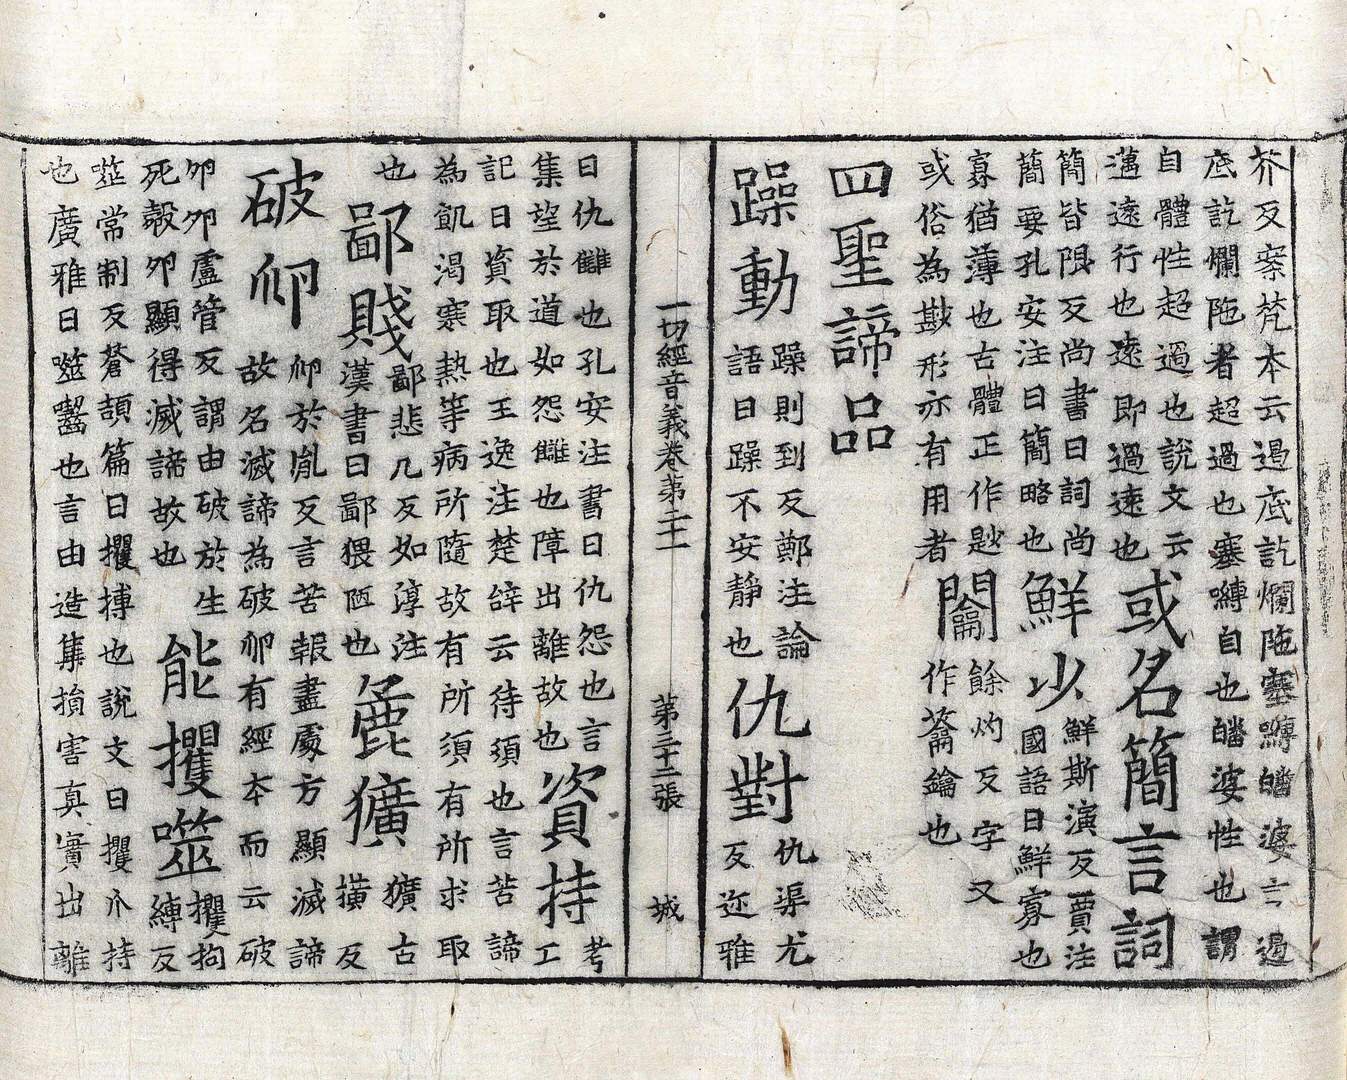 芥反案梵本云遏底訖爛陁塞嚩皤婆言遏
底訖爛陁者超過也塞嚩自也皤婆性也謂
自體性超過也說文云
邁遠行也遠即過遠也
或名簡言詞
簡皆限反尚書曰詞尚
簡要孔安注曰簡略也
鮮少
鮮斯演反賈注
國語曰鮮寡也
寡猶薄也古體正作尟
或俗為尠形亦有用者
𨷲
餘灼反字又
作籥鑰也
四聖諦品
躁動
躁則到反鄭注論
語曰躁不安靜也
仇對
仇渠尤
反迩雅
一切經音義卷第二十一 第三十二張 城
曰仇讎也孔安注書曰仇怨也言
集望於道如怨讎也障出離故也
資持
考
工
記曰資取也王逸注楚辝云待須也言苦諦
為飢渴寒熱等病所隨故有所須有所求取
也
鄙賤
鄙悲几反如淳注
漢書曰鄙猥陋也
麁獷
獷古
橫反
破卵
卵於胤反言苦報盡處方顯滅諦
故名滅諦為破卵有經本而云破
卵卵盧管反謂由破於生
死㲉卵顯得滅諦故也
能攫噬
攫拘
縛反
噬常制反蒼頡篇曰攫搏也說文曰攫爪持
也廣雅曰噬齧也言由造集損害真實出離